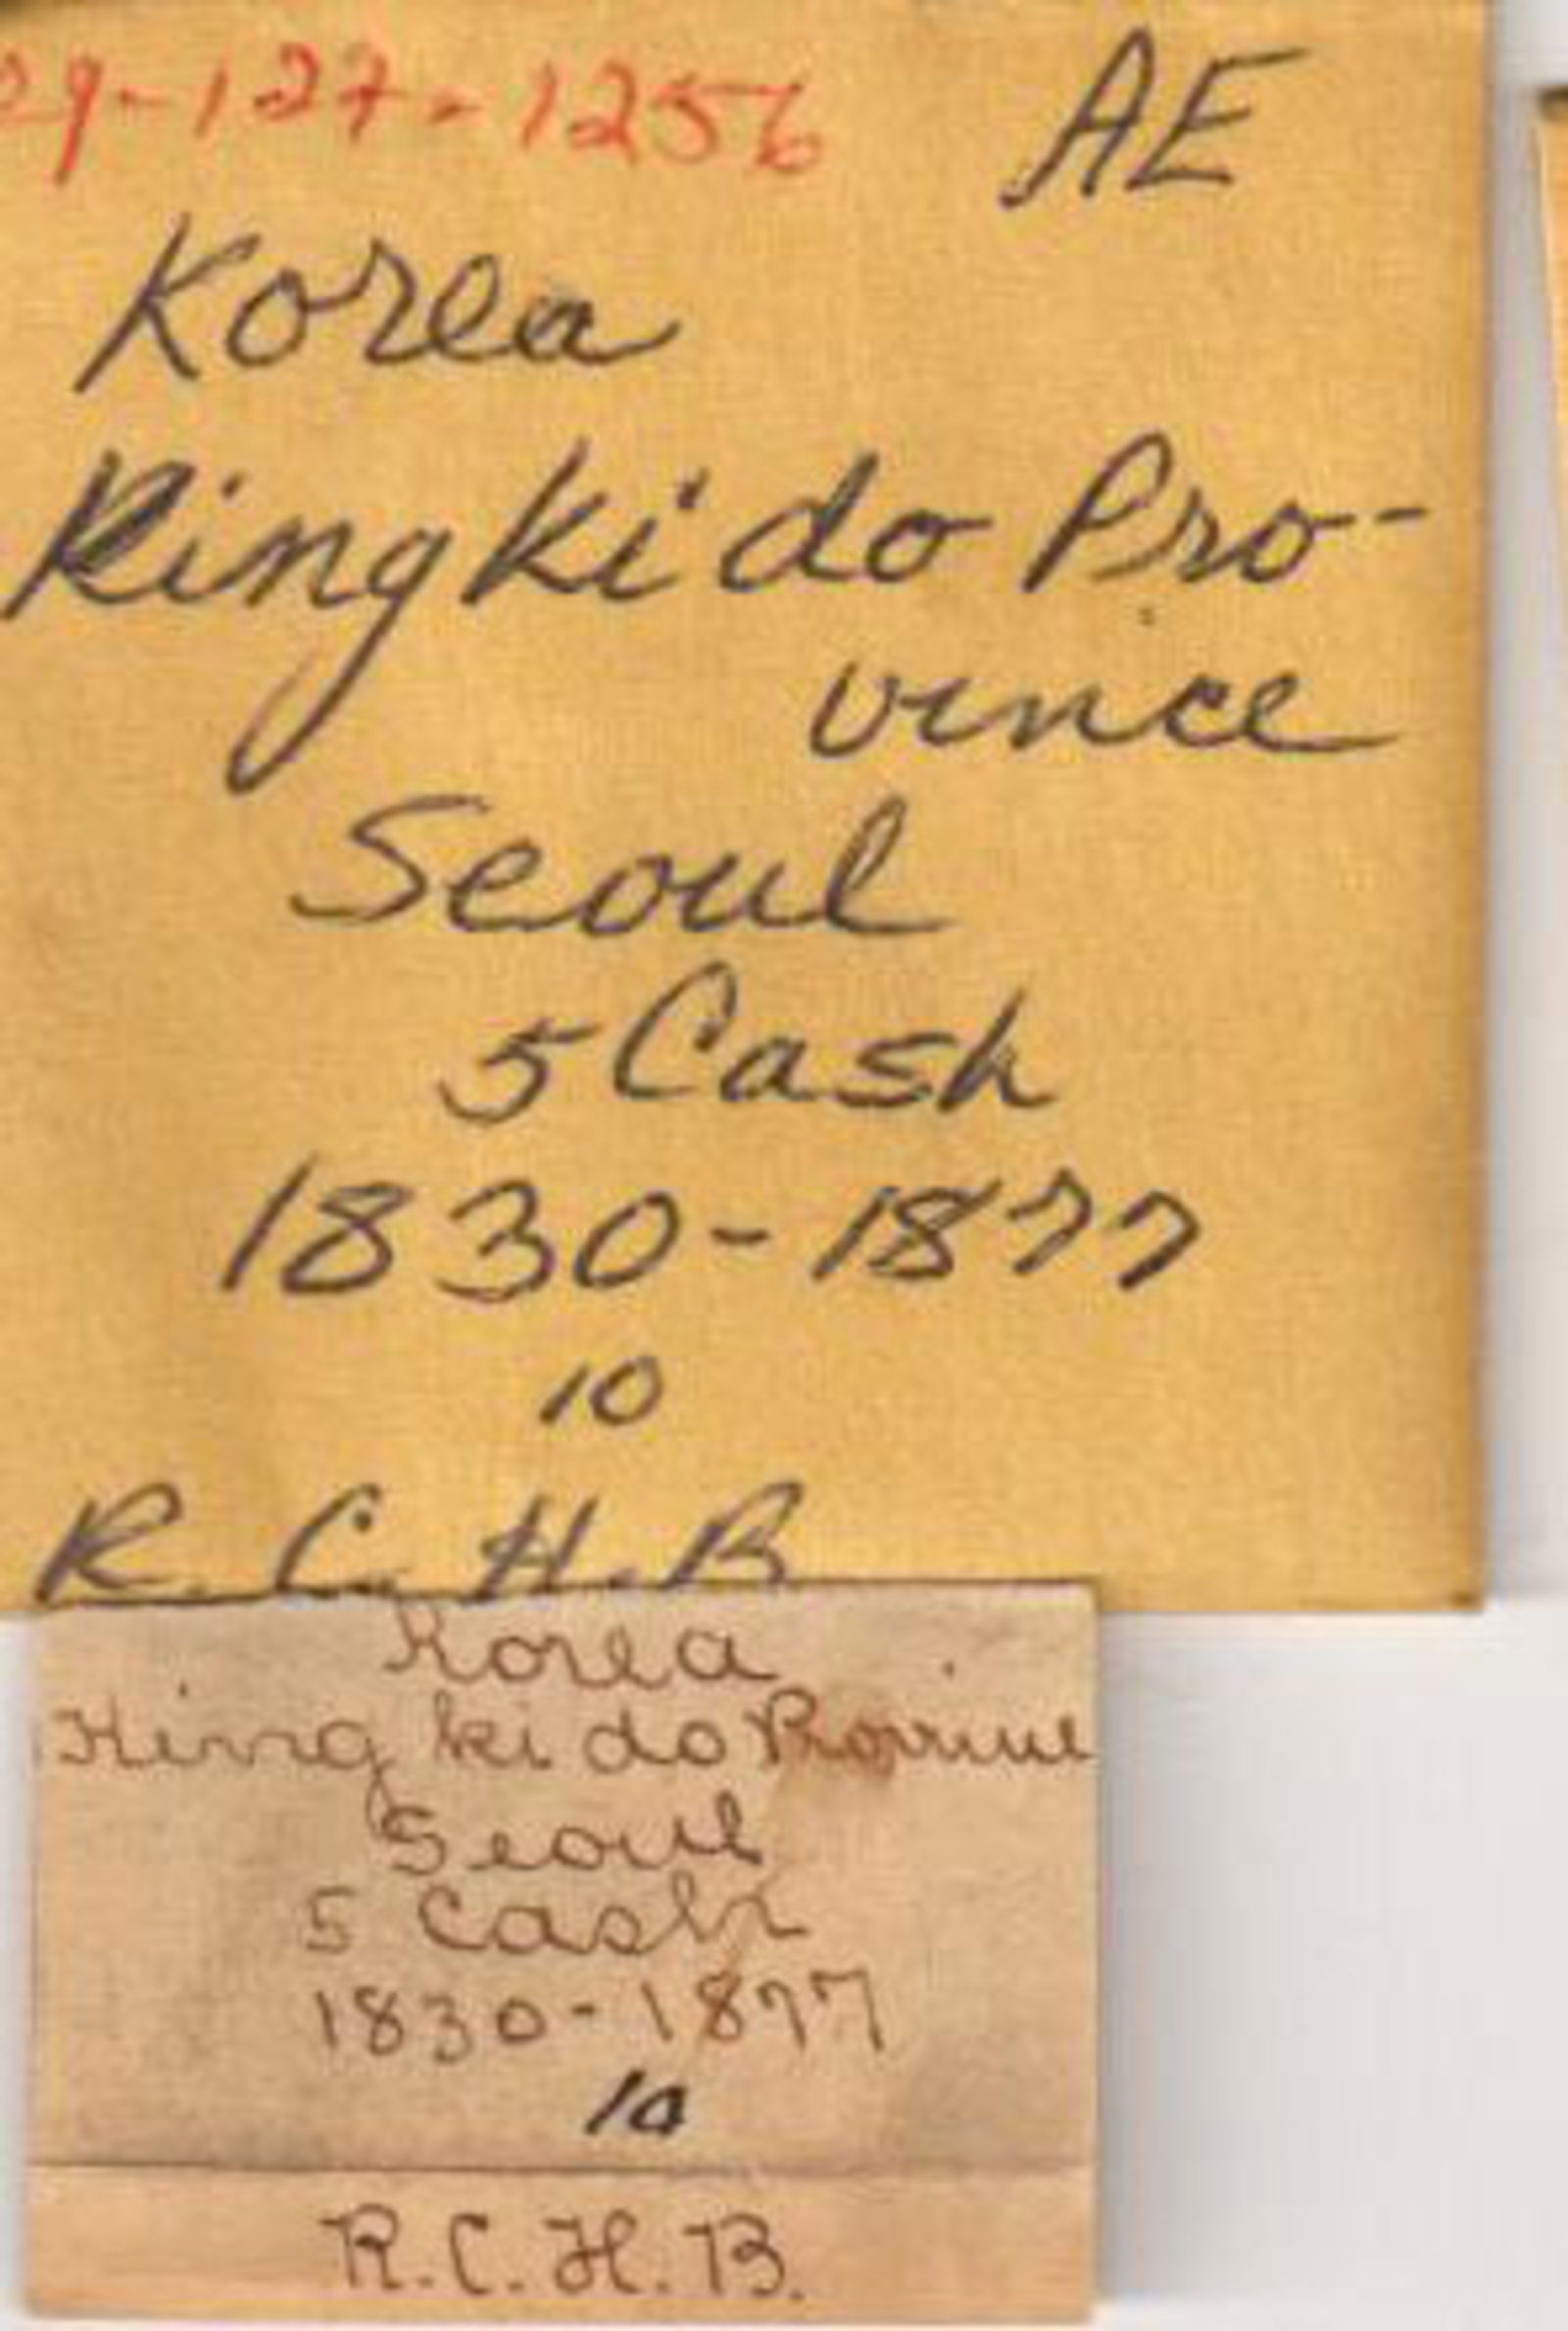 29-127-1256 AE
Korea
King ki do Pro-
vince
Seoul
5 Cash
1830-1877
10
R. C. H. B
Korea
King ki do Province
Seoul
5 Cash
1830-1877
10
R. C. H. B.